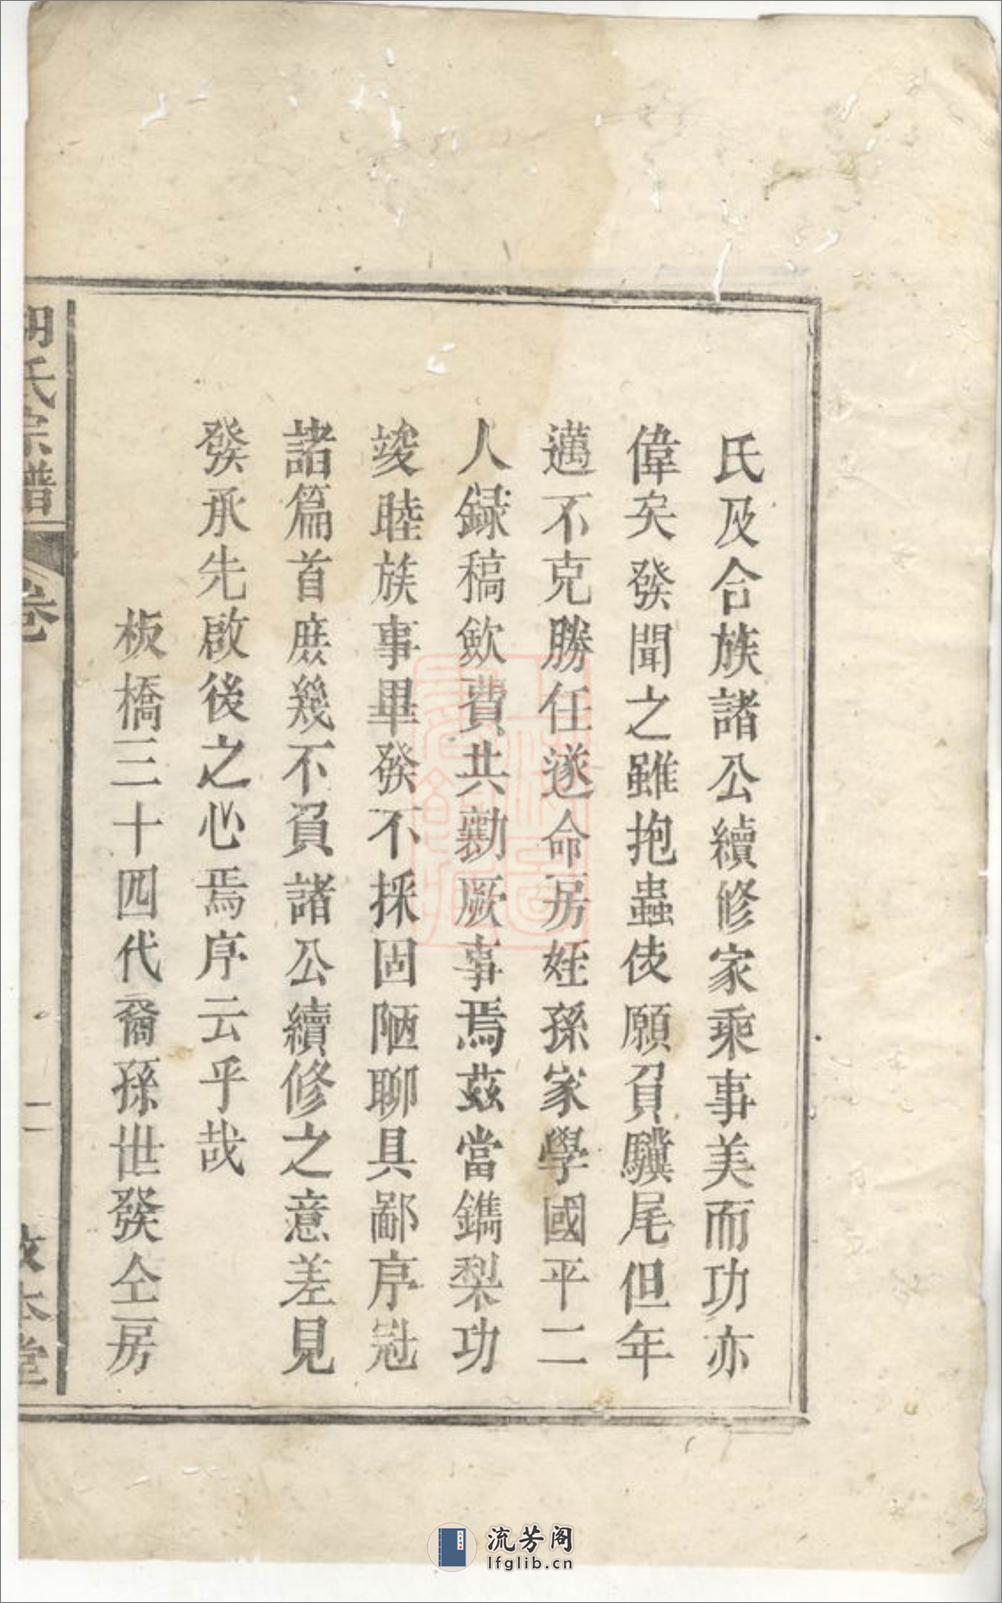 氏及合族諸公續修家乘事美而功亦
偉矣發聞之雖抱蟲伎願負驥尾但年
邁不克勝任遂命房姪孫家學國平二
人録稿歛費共勷厥事焉茲當鐫梨功
竣睦族事畢發不採固陋聊具鄙序冠
諸篇首庶幾不負諸公續修之意差見
發承先啟後之心焉序云乎哉
板橋三十四代裔孫世發仝房
胡氏宗譜
卷
二
敦本堂
流芳阁
lfglib.cn